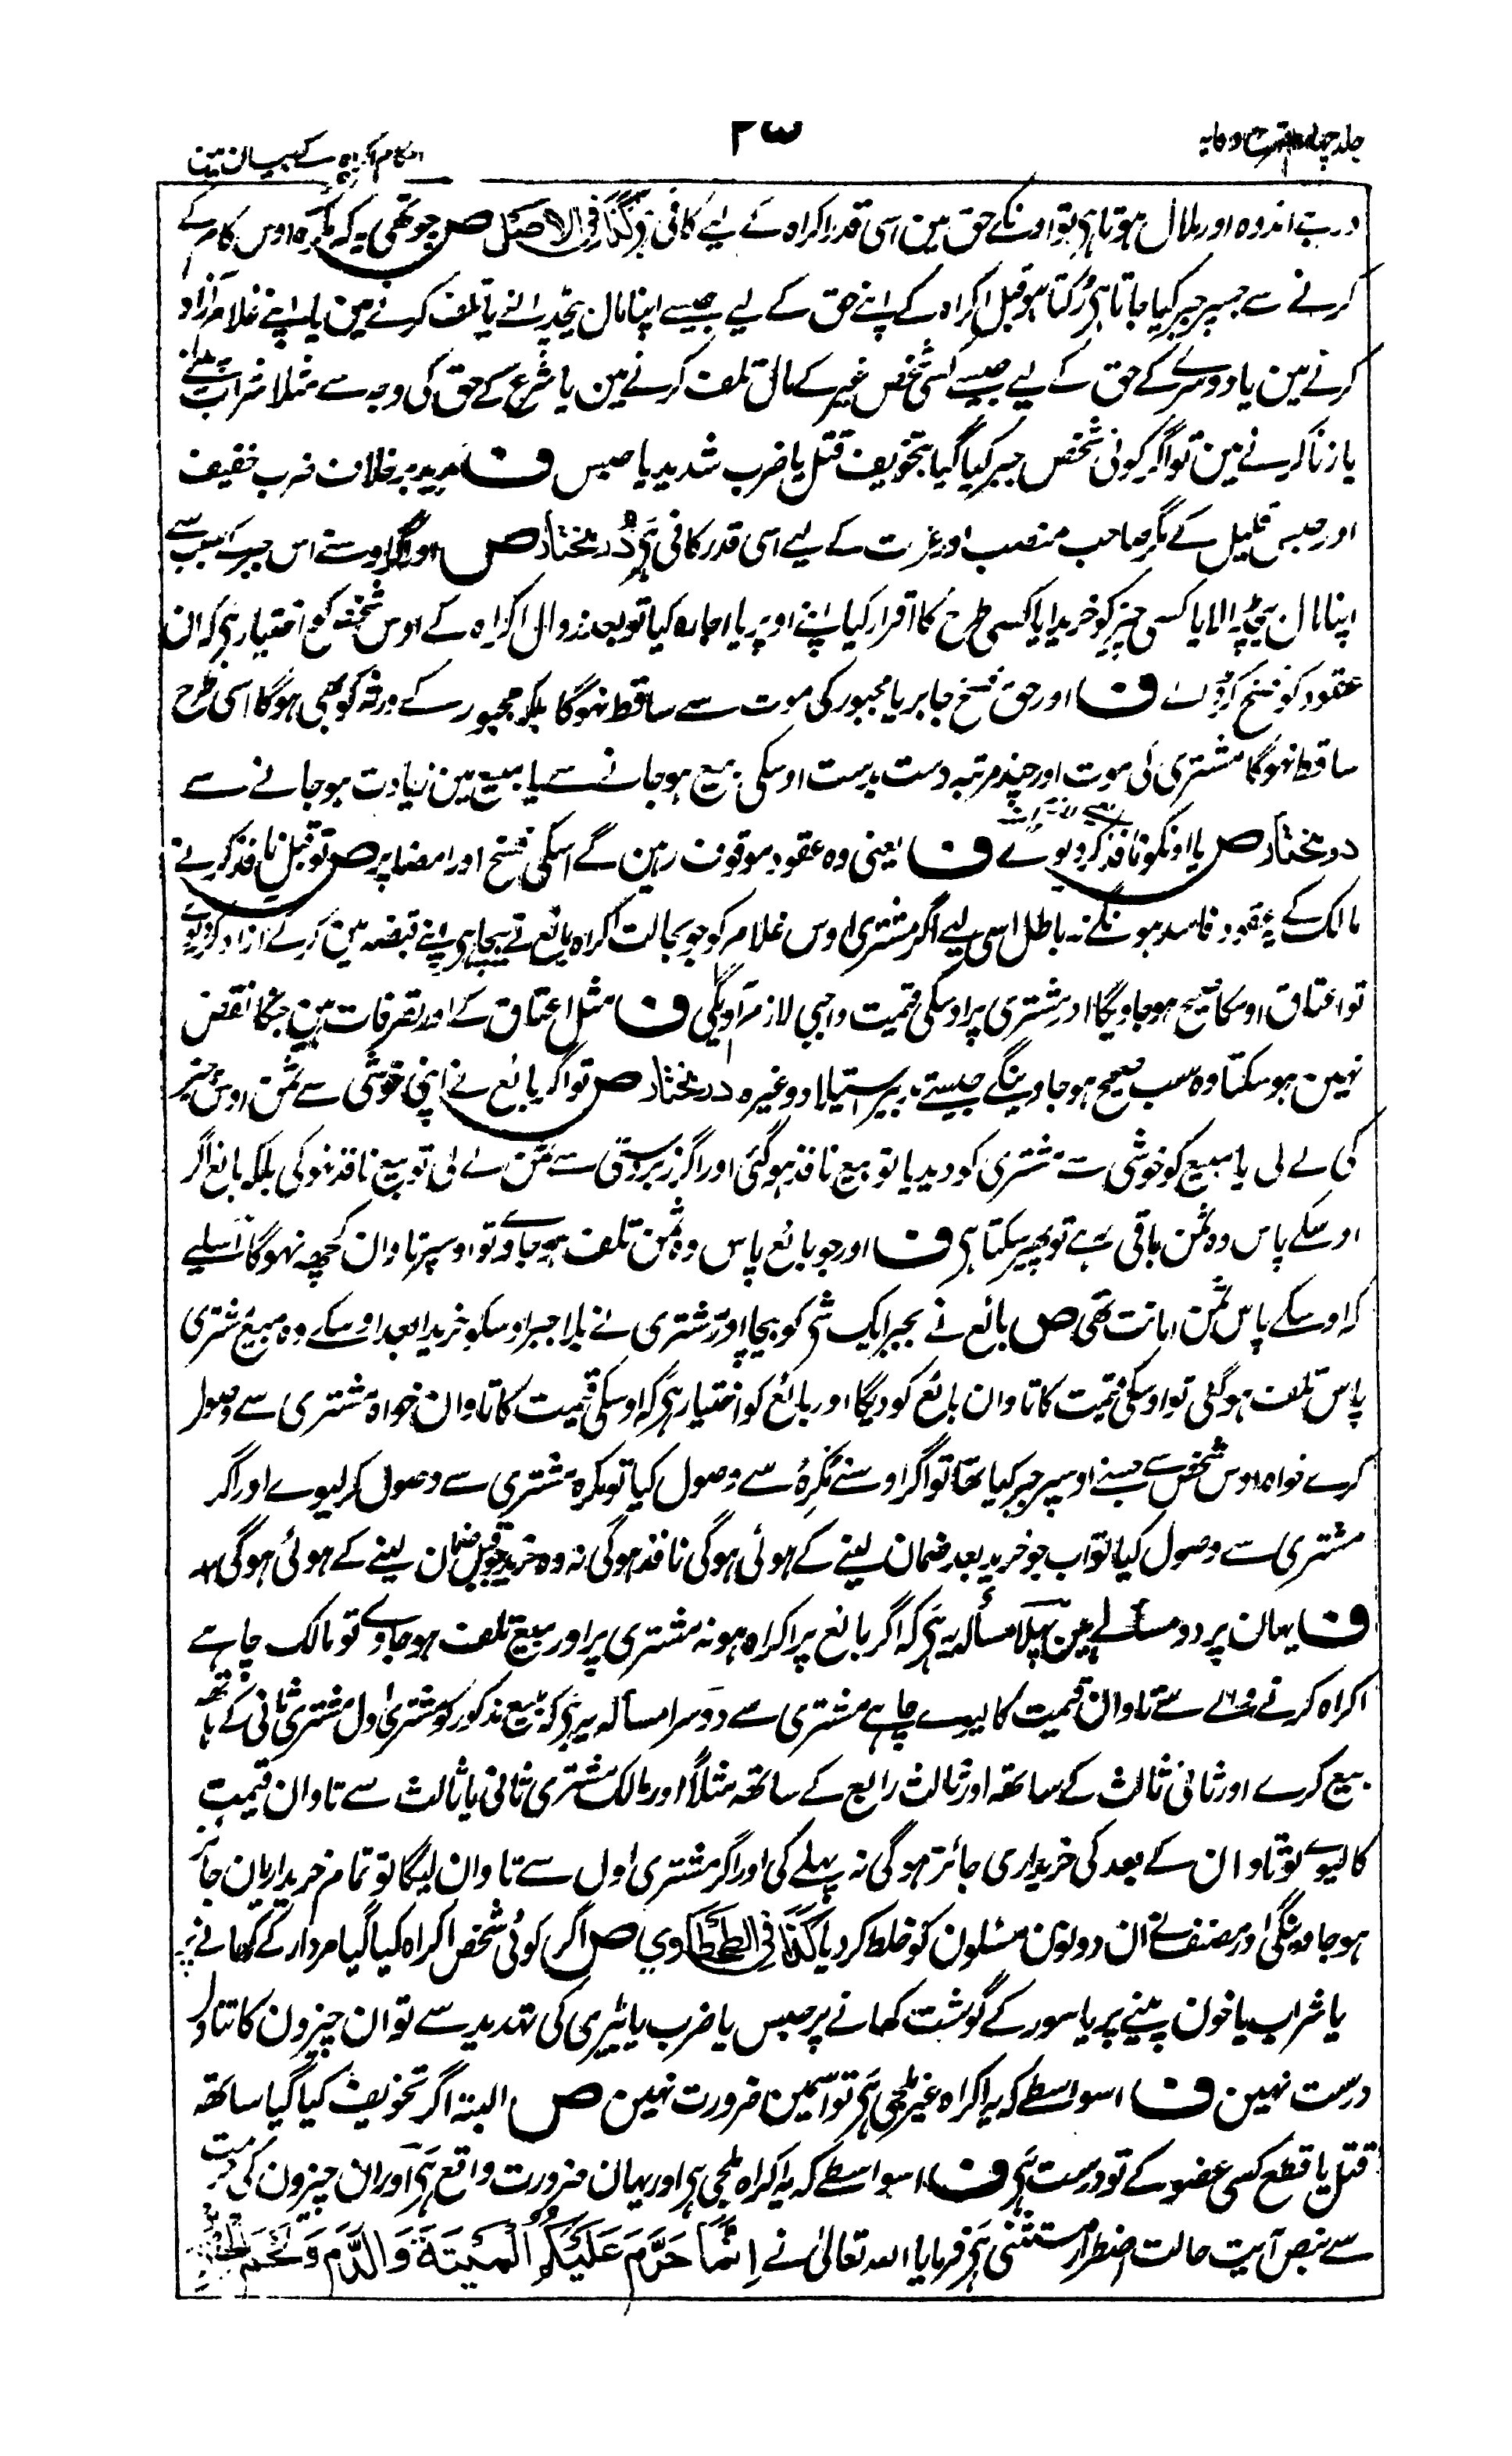 جلد چہارم شرح وقایہ
۳۵
احکام اکراہ کے بیان مین
درجے اندوہ اور ملال ہوتا ہی تو اونکے حق مین اسی قدر اکراہ کے لیے کافی ہی کَذَا فِی الاَصْل ص چوتھی یہ کہ مکرَہ اوس کام کے
کرنے سے جسپر جبر کیا جاتا ہی رُکتا ہو قبل اکراہ کے اپنے حق کے لیے جیسے اپنا مال بیچڈالنے یا تلف کرنے مین یا اپنے غلام آزاد
کرنے مین یا دوسرے کے حق کے لیے جیسے کسی شخص غیر کے مال تلف کرنے مین یا شرع کے حق کی وجہ سے مثلا شراب پینے
یا زنا کرنے مین تو اگر کوئی شخص جبر کیا گیا بتخویف قتل یا ضرب شدید یا حبس ف مدید برخلاف ضرب خفیف
اور حبس قلیل کے مگر صاحب منصب اور عزت کے لیے اسی قدر کافی ہی دُر مختار ص اور اگر اوسنے اس جبر کے سبب سے
اپنا مال بیچ ڈالا یا کسی چیز کو خریدا یا کسی طرح کا اقرار کیا اپنے اوپر یا اجارہ کیا تو بعد زوال اکراہ کے اوس شخص کو اختیار ہی کہ ان
عقود کو فسخ کر ڈالے ف اور حق فسخ جابر یا مجبور کی موت سے ساقط نہوگا بلکہ مجبور کے ورثہ کو بھی ہوگا اسی طرح
ساقط نہوگا مشتری کی موت اور چند مرتبہ دست بدست اوسکی بیع ہو جانے سے یا مبیع مین زیادت ہو جانے سے
در مختار ص یا اونکو نافذ کر دیوے ف یعنی وہ عقود موقوف رہین گے اسکی فسخ اور امضا پر ص تو قبل نافذ کرنے
مالک کے یہ عقود فاسد ہونگے نہ باطل اسی لیے اگر مشتری اوس غلام کو جو بحالت اکراہ بائع نے بیچا ہی اپنے قبضہ مین کر کے آزاد کر دیوے
تو اعتاق اوسکا صحیح ہو جاویگا اور مشتری پر اوسکی قیمت واجبی لازم آویگی ف مثل اعتاق کے اور تصرفات ہین جنکا نقض
نہین ہو سکتا وہ سب صحیح ہو جاوینگے جیسے تدبیر استیلاد وغیرہ در مختار ص تو اگر بائع نے اپنی خوشی سے ثمن اوس چیز
کی لے لی یا مبیع کو خوشی سے مشتری کو دیدیا تو بیع نافذ ہو گئی اور اگر زبردستی سے ثمن لے لی تو بیع نافذ نہوگی بلکہ بائع اگر
اوسکے پاس وہ ثمن باقی ہے تو پھیر سکتا ہی ف اور جو بائع پاس وہ ثمن تلف ہو جاوے تو اوسپر تاوان کچھ نہوگا اسلیے
کہ اوسکے پاس ثمن امانت تھی ص بائع نے بجبر ایک شی کو بیچا اور مشتری نے بلا جبر اوسکو خریدا بعد اوسکے وہ مبیع مشتری
پاس تلف ہو گئی تو اوسکی قیمت کا تاوان بائع کو دیگا اور بائع کو اختیار ہی کہ اوسکی قیمت کا تاوان خواہ مشتری سے وصول
کرے خواہ اوس شخص سے جسنے اوسپر جبر کیا تھا تو اگر اوسنے مُکرِہ سے وصول کیا تو مکرہ مشتری سے وصول کر لیوے اور اگر
مشتری سے وصول کیا تو اب جو خرید بعد ضمان لینے کے ہوئی ہوگی نافذ ہوگی نہ وہ خرید جو قبل ضمان لینے کے ہوئی ہوگی
ف یہان پر دو مسألے ہین پہلا مسألہ یہ ہی کہ اگر بائع پر اکراہ ہو نہ مشتری پر اور مبیع تلف ہو جاوے تو مالک چاہے
اکراہ کرنے والے سے تاوان قیمت کا لیوے چاہے مشتری سے دوسرا مسألہ یہ ہی کہ مبیع مذکور کو مشتری اول مشتری ثانی کے ہاتھ
بیع کرے اور ثانی ثالث کے ساتھ اور ثالث رابع کے ساتھ مثلاً اور مالک مشتری ثانی یا ثالث سے تاوان قیمت
کا لیوے تو تاوان کے بعد کی خریداری جائز ہوگی نہ پہلے کی اور اگر مشتری اول سے تاوان لیگا تو تمام خریداریان جائز
ہو جاوینگی اور مصنف نے ان دونون مسئلون کو خلط کر دیا کَذَا فِی الطَّحْطَاوِی ص اگر کوئی شخص اکراہ کیا گیا مردار کے کھانے پر
یا شراب یا خون پینے پر یا سور کے گوشت کھانے پر حبس یا ضرب یا بیڑی کی تہدید سے تو ان چیزون کا تناول
درست نہین ف اسواسطے کہ یہ اکراہ غیر ملجی ہی تو اسمین ضرورت نہین ص البتہ اگر تخویف کیا گیا ساتھ
قتل یا قطع کسی عضو کے تو درست ہی ف اسواسطے کہ یہ اکراہ ملجی ہی اور یہان ضرورت واقع ہی اور ان چیزون کی حرمت
سے بنص آیت حالت اضطرار مستثنی ہی فرمایا اللہ تعالیٰ نے اِنَّمَا حَرَّمَ عَلَیْکُمُ الْمَیْتَةَ وَالدَّمَ وَلَحْمَ